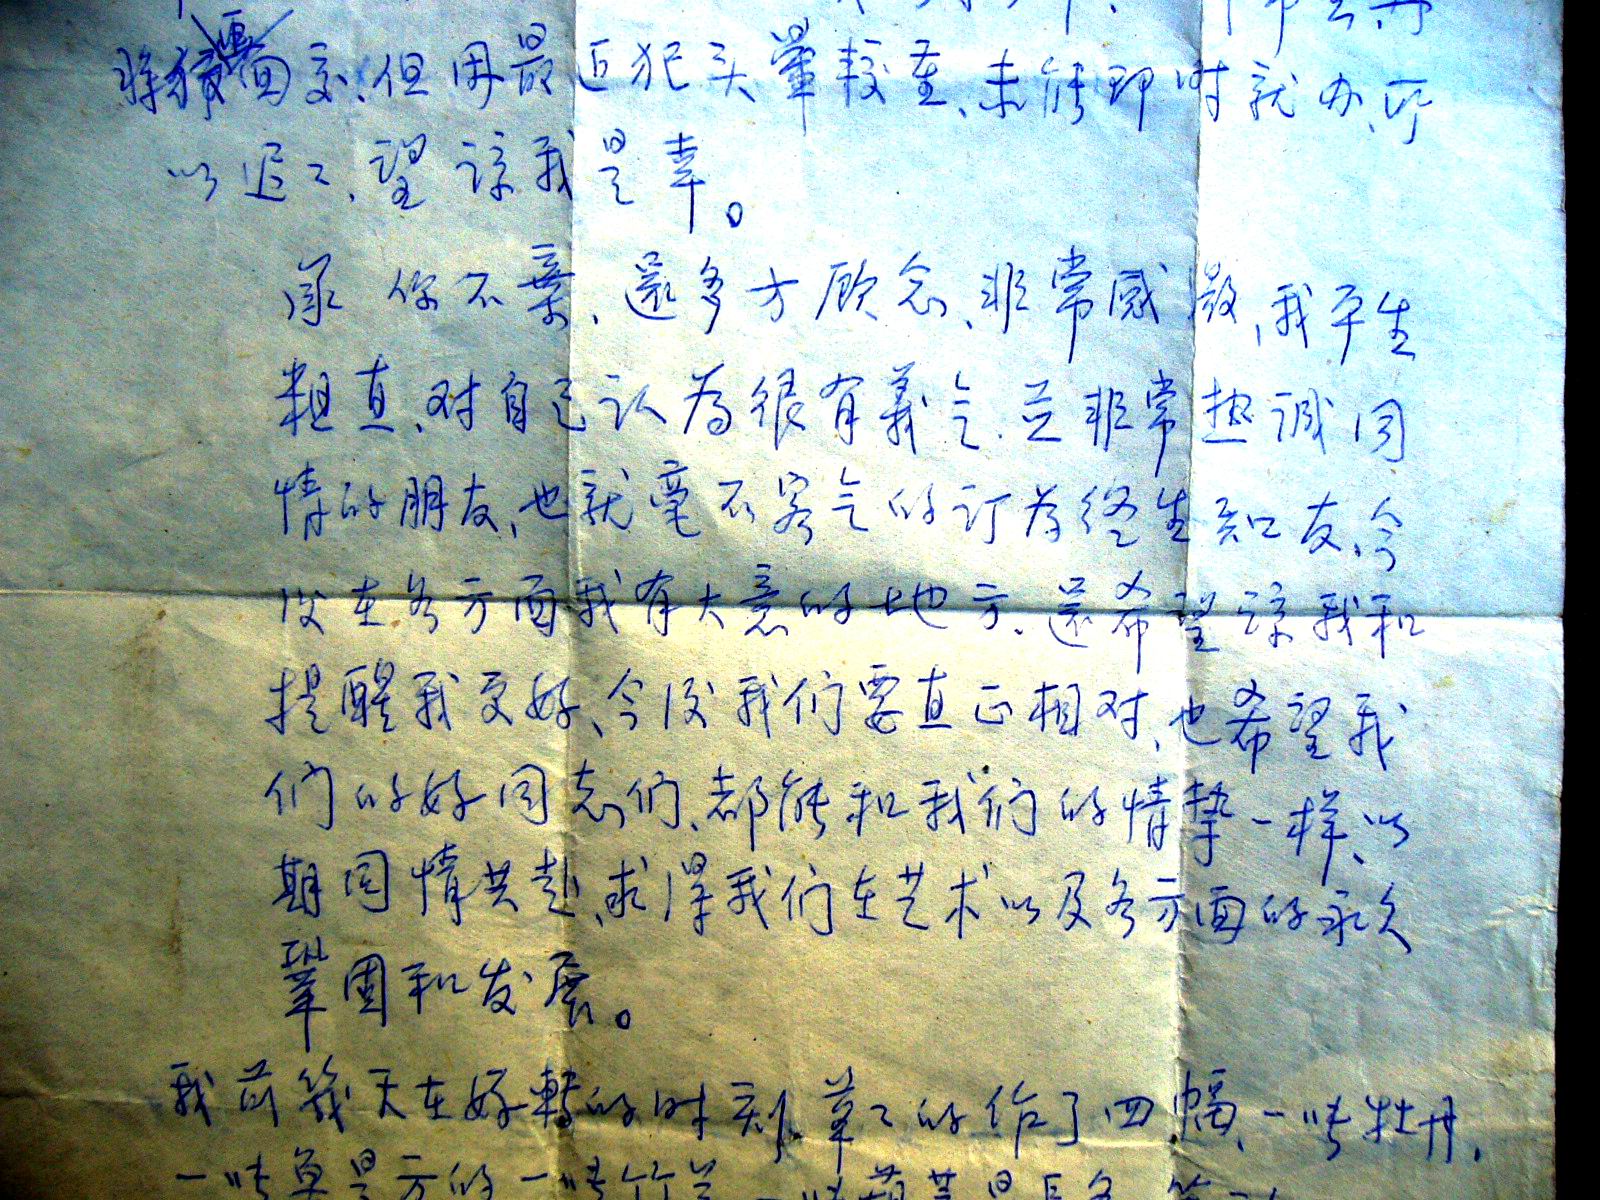 回交、但因最近犯头晕较重、未能即时就办、所
以迟了、望谅我是幸。
承 你不棄、還多方顾念、非常感激、我平生
粗直、对自己认为很有義气、並非常热诚同
情的朋友、也就毫不客气的订为终生知友、今
后在各方面我有大意的地方、還希望谅我和
提醒我更好、今后我们要直正相对、也希望我
们的好同志们、都能和我们的情挚一样、以
期同情共赴、求得我们在艺术以及各方面的永久
鞏固和发展。
我前幾天在好轉的时刻、草々的作了四幅、一张牡丹、
一张鱼是方的一张竹兰